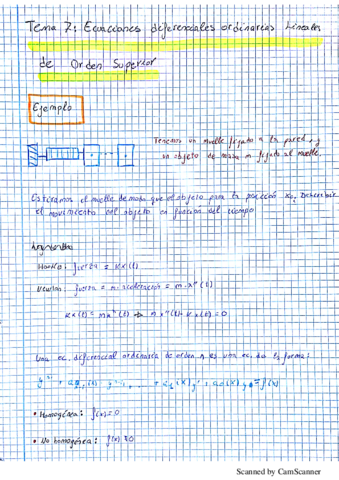 Tema 7: Ecuaciones diferenciales ordinarias lineales
de Orden Superior
Ejemplo
Tenemos un muelle fijado a la pared, y
un objeto de masa m fijado al muelle.
Estiramos el muelle de modo que el objeto pasa a la posición x₀. Describir
el movimiento del objeto en función del tiempo
Hooke: fuerza = k x(t)
Newton: fuerza = m · aceleración = m · x''(t)
k x(t) = m x''(t) → m x''(t) - k x(t) = 0
Una ec. diferencial ordinaria de orden n es una ec. de la forma:
• Homogénea: f(x) = 0
• No homogénea: f(x) ≠ 0
Scanned by CamScanner